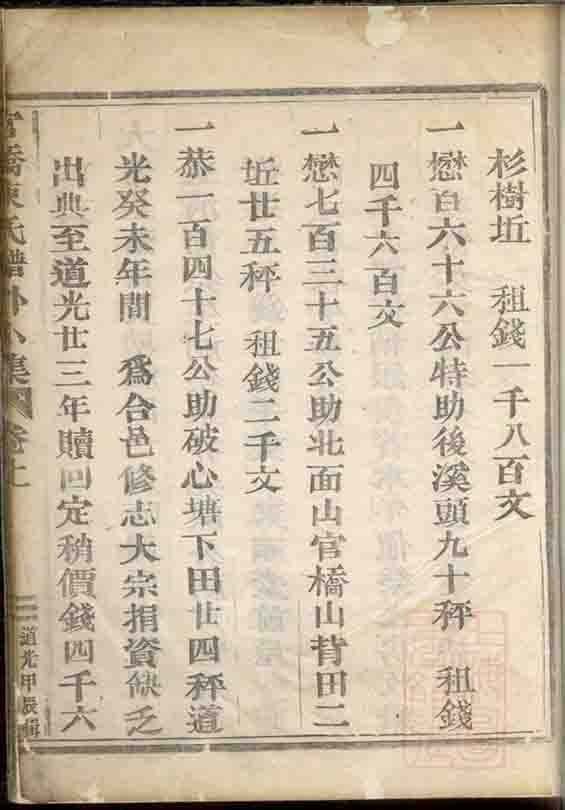 杉樹坵　租錢一千八百文
一懋百六十六公特助後溪頭九十秤　租錢
四千六百文
一懋七百三十五公助北面山官橋山背田二
坵廿五秤　租錢二千文
一恭一百四十七公助破心塘下田廿四秤道
光癸未年間　爲合邑修志大宗捐資缺乏
出典至道光廿三年贖回定稍價錢四千六
官橋陳氏譜外小集
卷上
三
道光甲辰輯